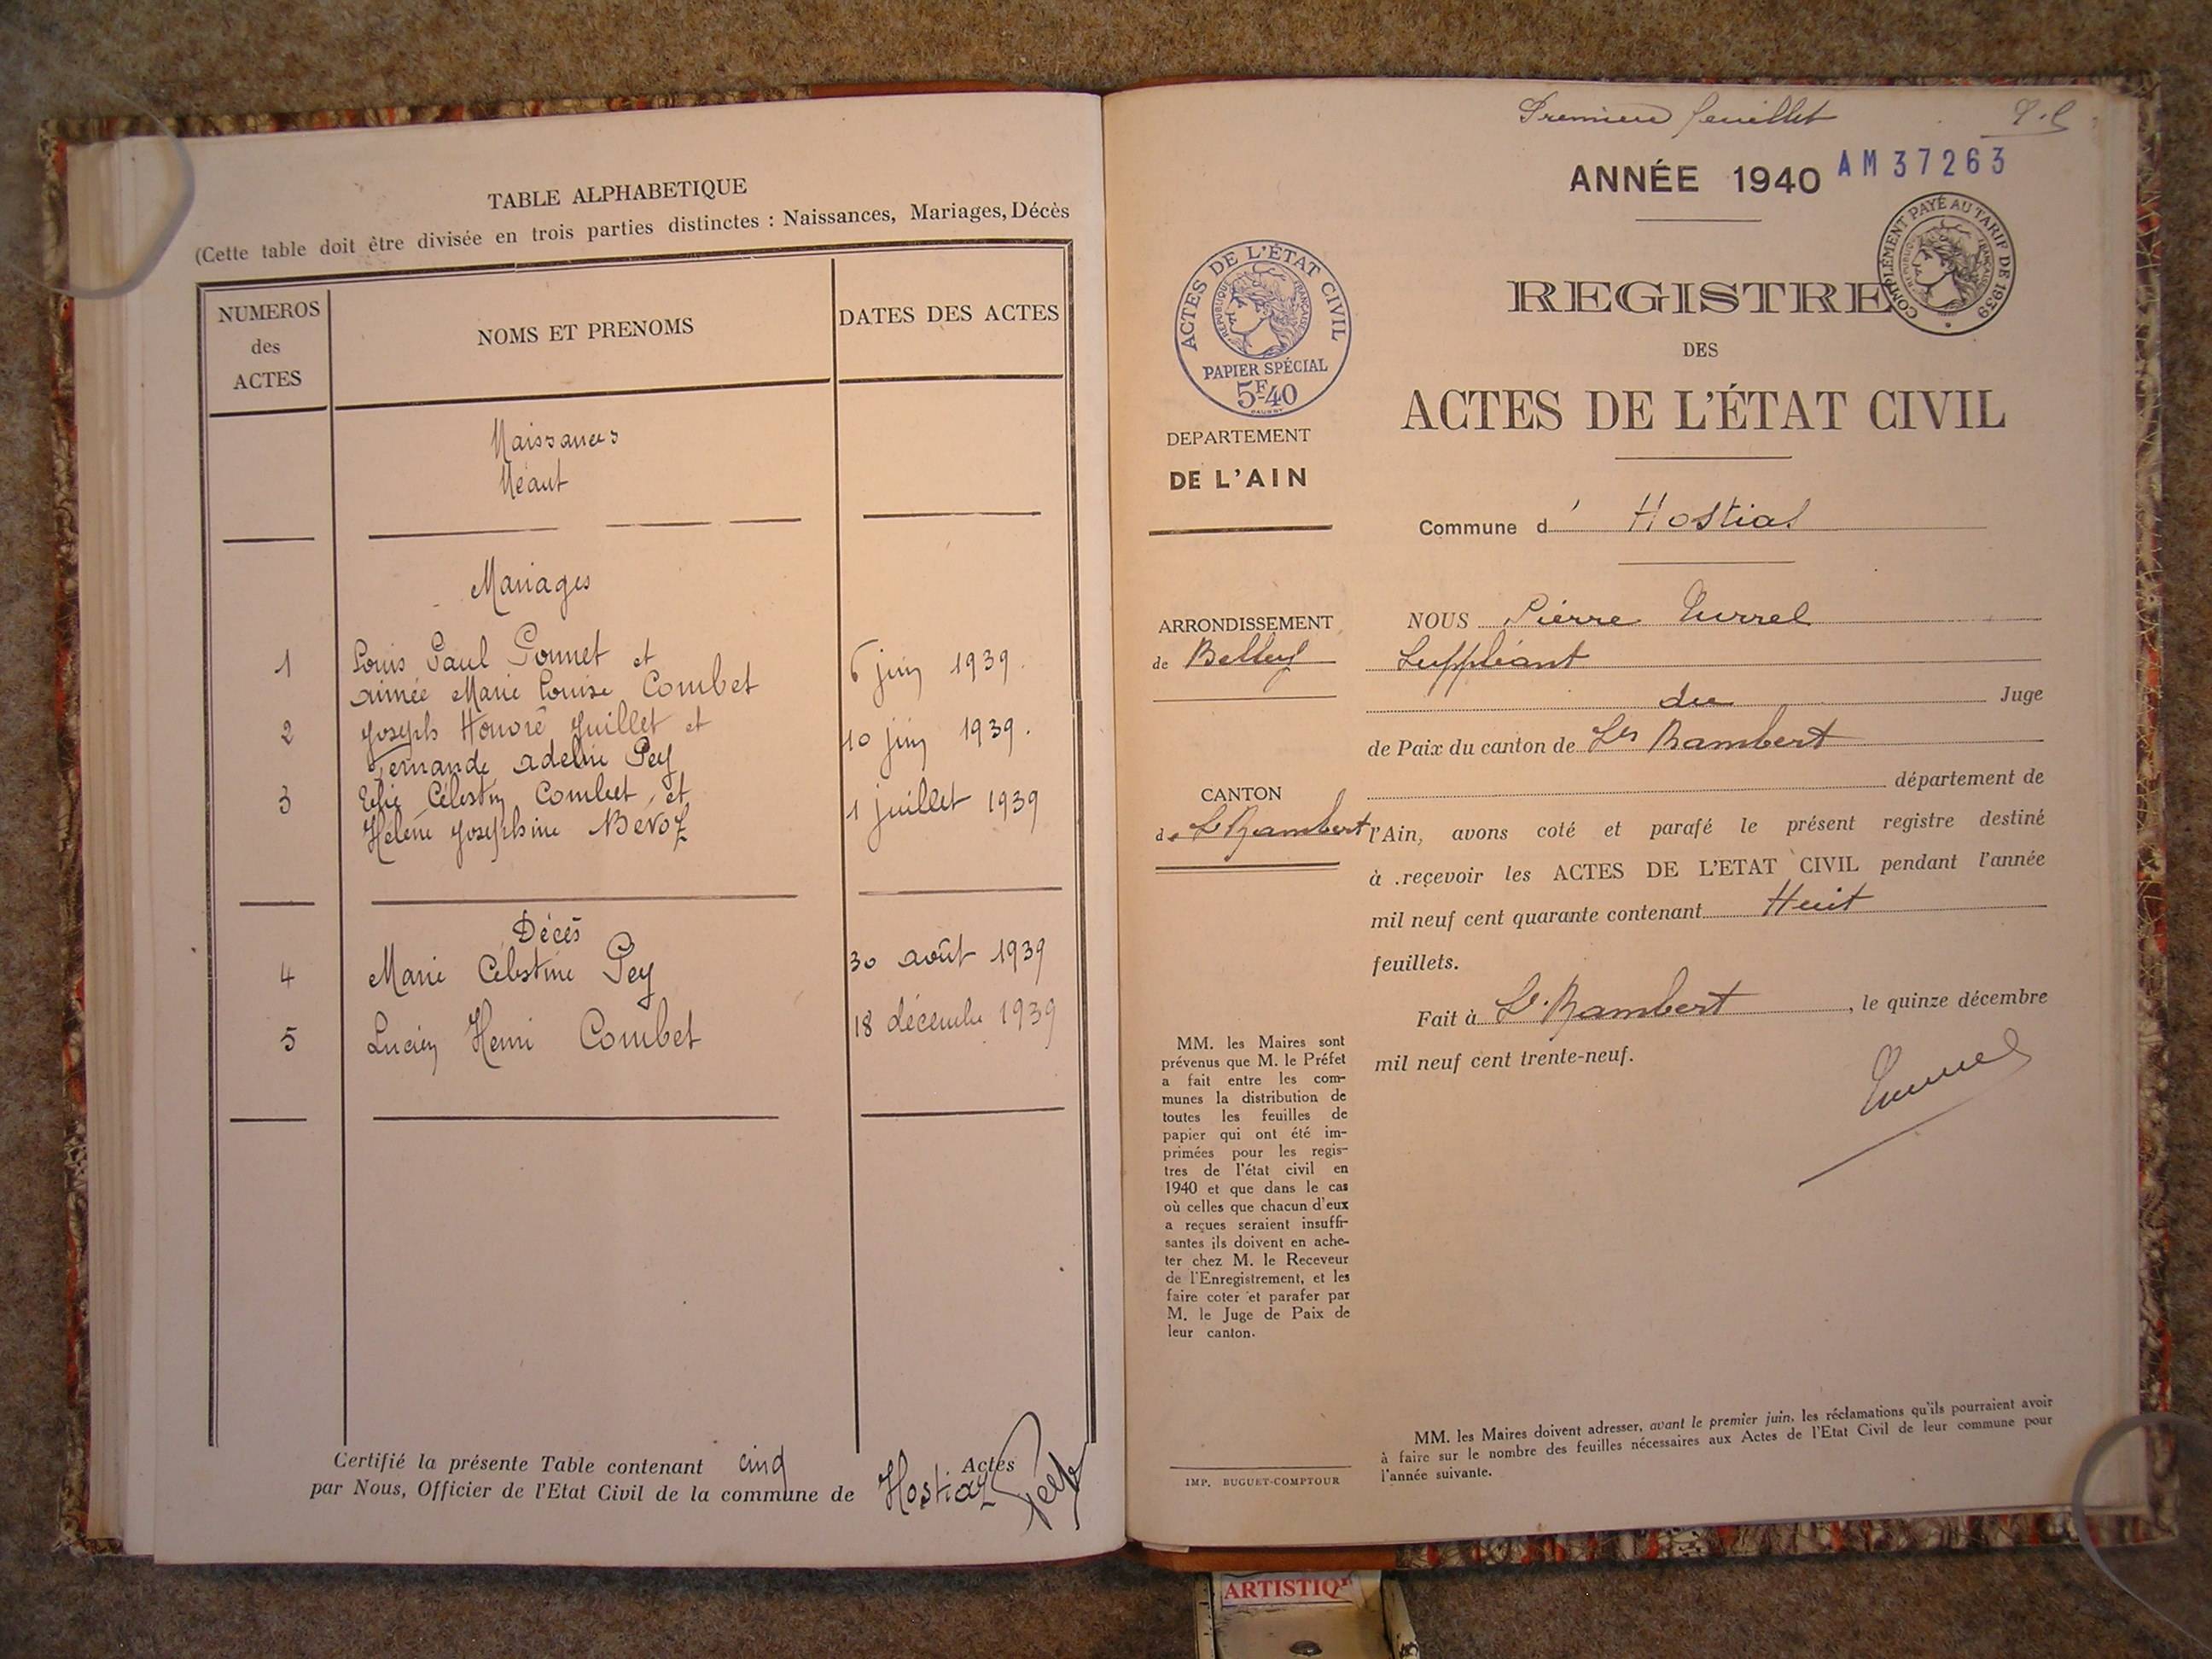 TABLE ALPHABETIQUE
(Cette table doit être divisée en trois parties distinctes : Naissances, Mariages, Décès
NUMEROS
des
ACTES
NOMS ET PRENOMS
DATES DES ACTES
Naissances
Néant
Mariages
1 Louis Paul Gonnet et 6 juin 1939.
aimée Marie Louise Combet
2 Joseph Honoré Juillet et 10 juin 1939.
Fernande adeline Pey
3 Célestin Combet et 1 juillet 1939
Hélène Joséphine Bevoz
Décès
4 Marie Célestine Pey 30 août 1939
5 Lucien Henri Combet 18 décembre 1939
Certifié la présente Table contenant cinq Actes
par Nous, Officier de l'Etat Civil de la commune de Hostiaz
Premier feuillet
ANNÉE 1940 AM 37263
COMPLÉMENT PAYÉ AU TARIF DE 1939
RÉPUBLIQUE FRANÇAISE
REGISTRE
DES
ACTES DE L'ÉTAT CIVIL
ACTES DE L'ÉTAT CIVIL
RÉPUBLIQUE FRANÇAISE
PAPIER SPÉCIAL
5F40
DEPARTEMENT
DE L'AIN
ARRONDISSEMENT
de Belley
CANTON
de St Rambert
MM. les Maires sont
prévenus que M. le Préfet
a fait entre les com-
munes la distribution de
toutes les feuilles de
papier qui ont été im-
primées pour les regis-
tres de l'état civil en
1940 et que dans le cas
où celles que chacun d'eux
a reçues seraient insuffi-
santes ils doivent en ache-
ter chez M. le Receveur
de l'Enregistrement, et les
faire coter et parafer par
M. le Juge de Paix de
leur canton.
IMP. BUGUET-COMPTOUR
Commune d' Hostias
NOUS Pierre Turrel
Suppléant
du Juge
de Paix du canton de St Rambert
département de
l'Ain, avons coté et parafé le présent registre destiné
à recevoir les ACTES DE L'ETAT CIVIL pendant l'année
mil neuf cent quarante contenant Huit
feuillets.
Fait à St Rambert, le quinze décembre
mil neuf cent trente-neuf.
Turrel
MM. les Maires doivent adresser, avant le premier juin, les réclamations qu'ils pourraient avoir
à faire sur le nombre des feuilles nécessaires aux Actes de l'Etat Civil de leur commune pour
l'année suivante.
ARTISTIQ